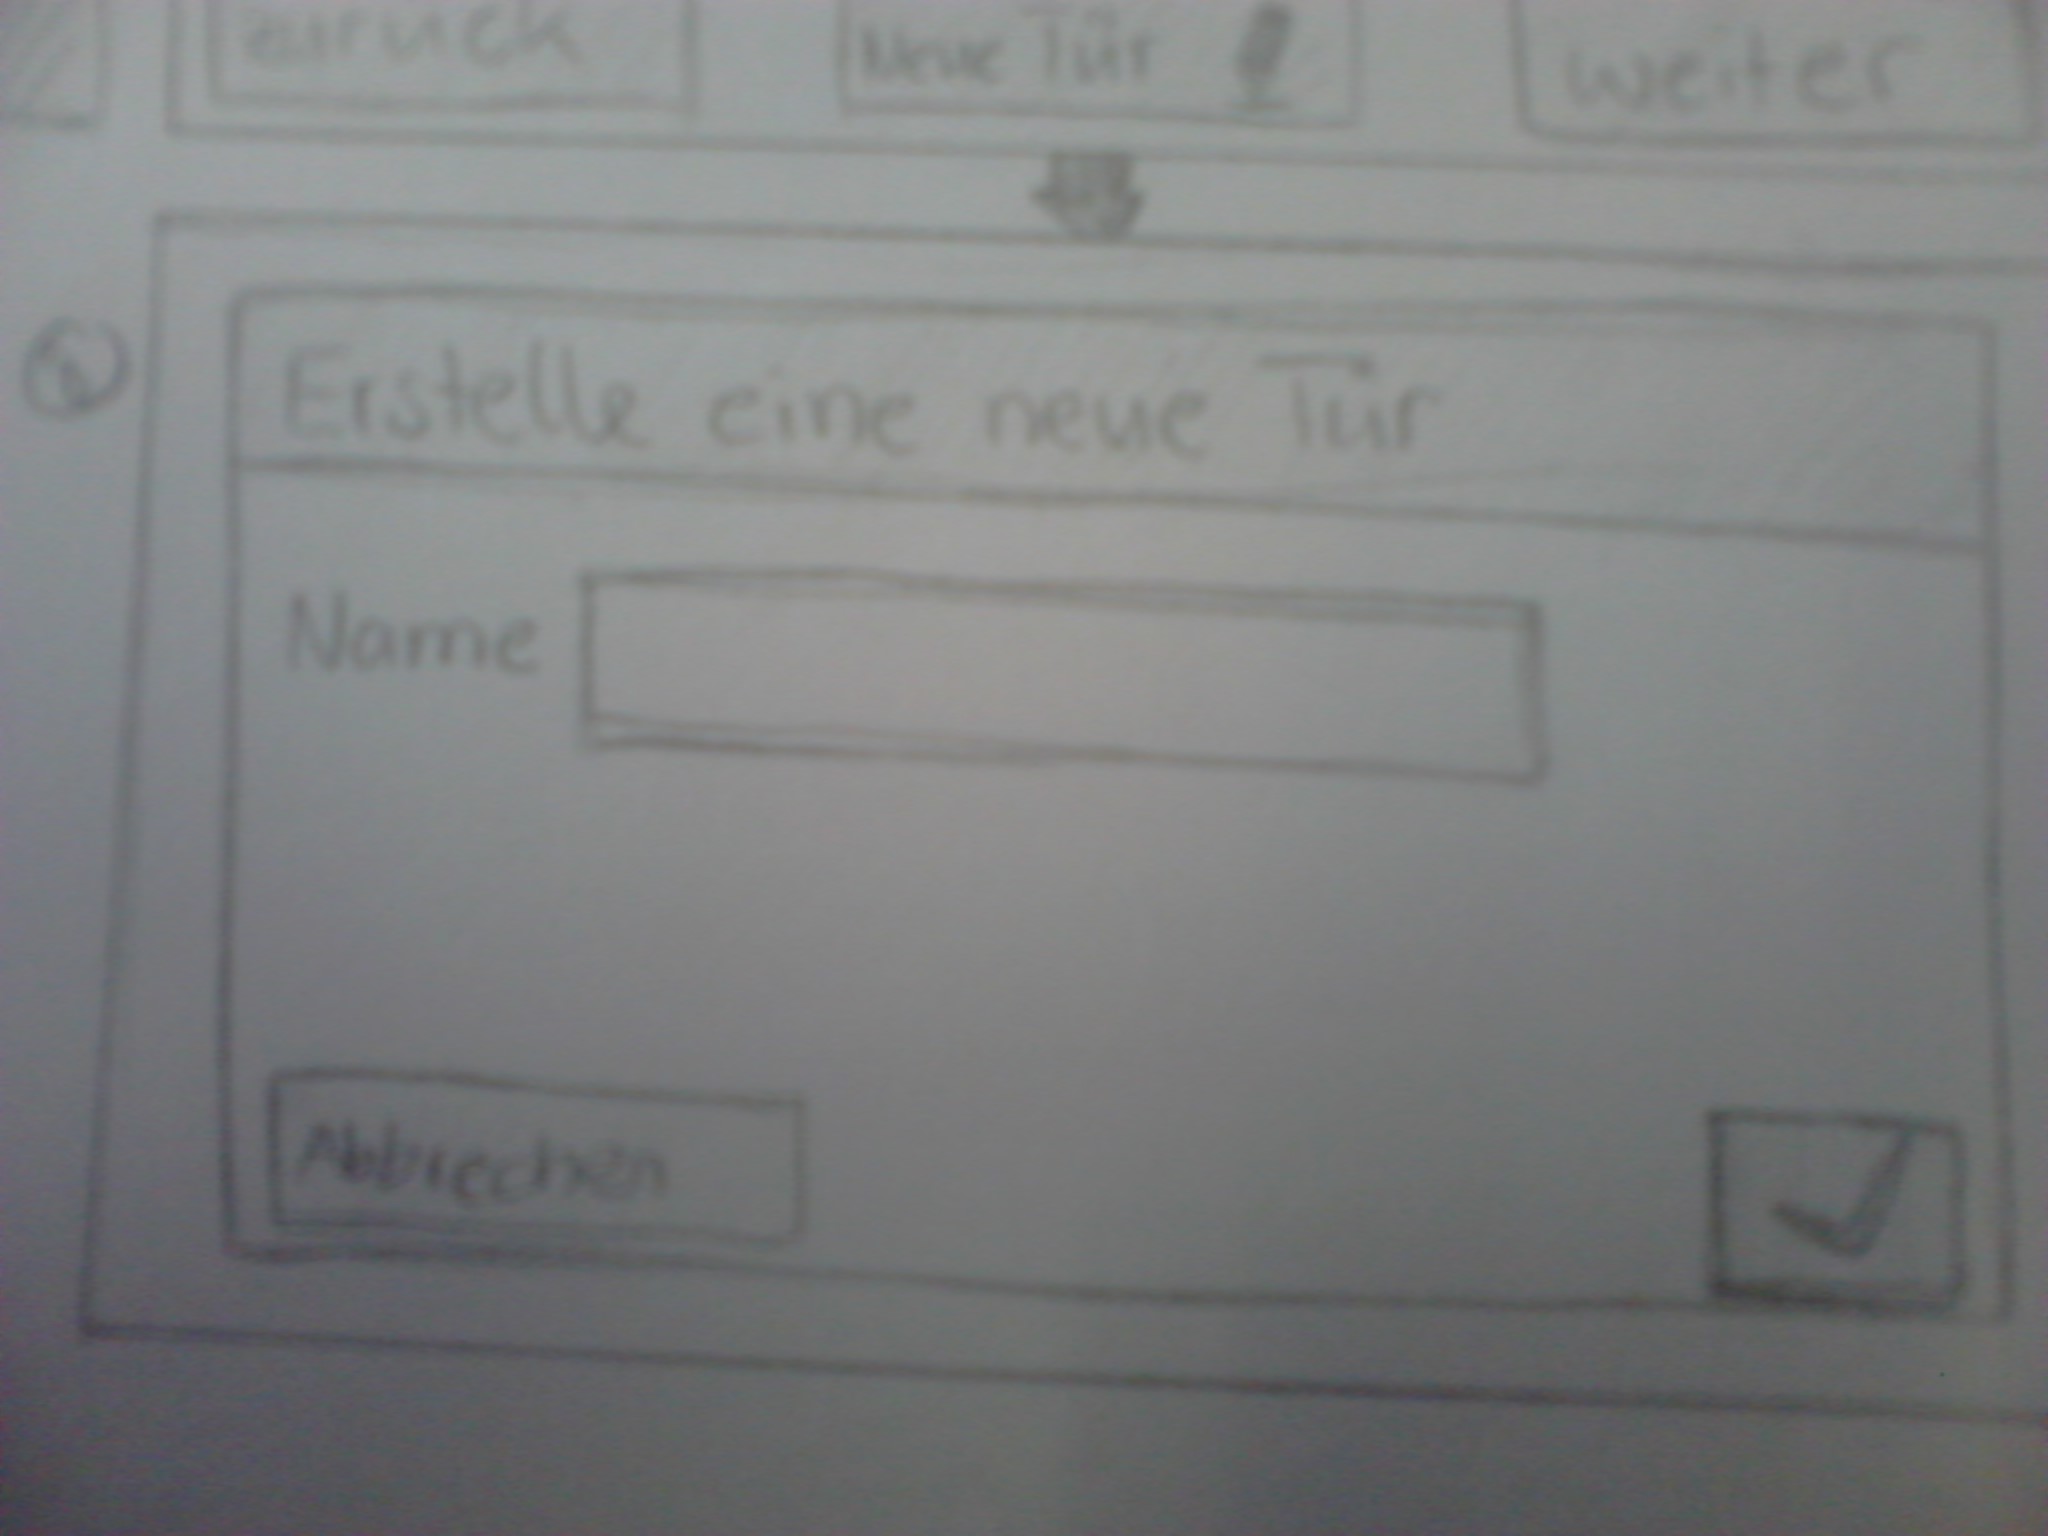 zurück
Neue Tür
weiter
Erstelle eine neue Tür
Name
Abbrechen